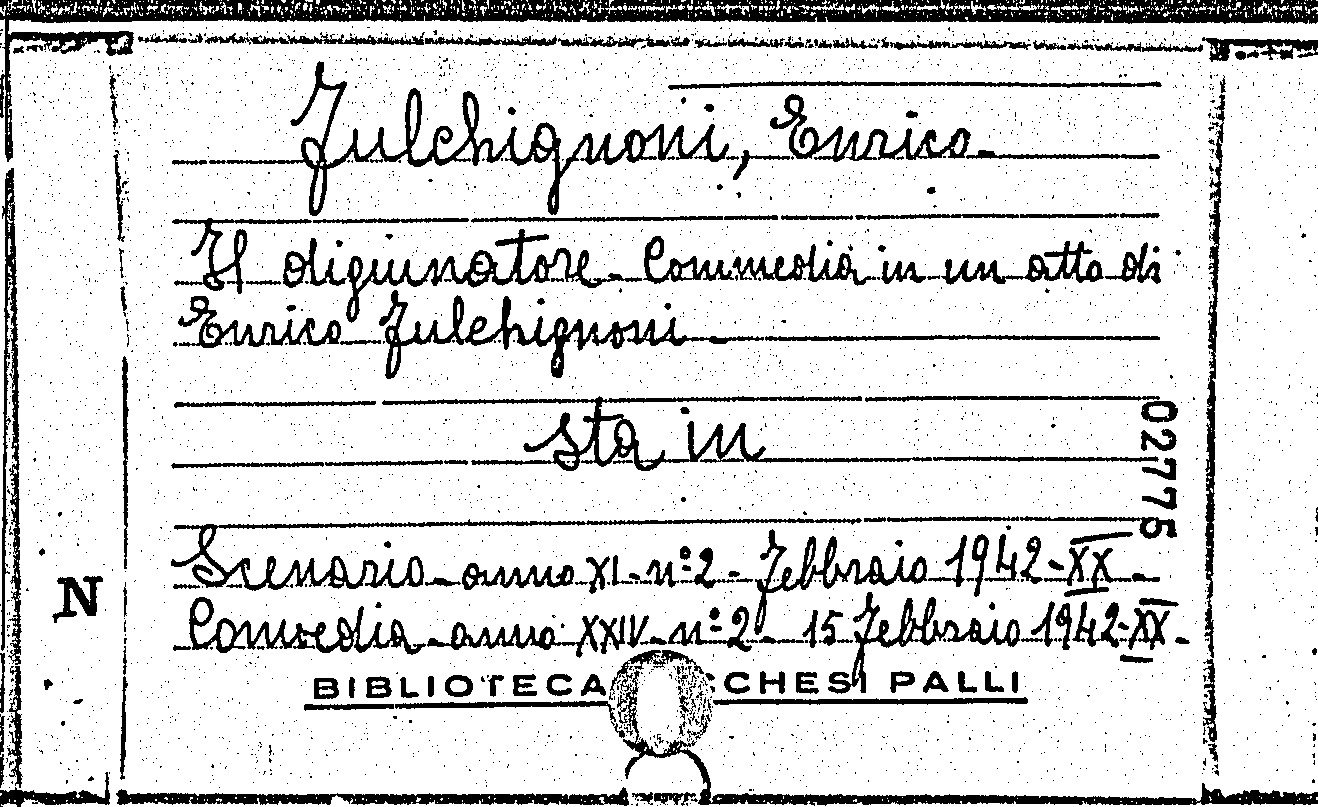 Fulchignoni, Enrico.
Il digiunatore. Commedia in un atto di
Enrico Fulchignoni.
sta in
Scenario - anno XI - n° 2 - Febbraio 1942 - XX -
Comoedia - anno XXIV - n° 2 - 15 Febbraio 1942 - XX -
BIBLIOTECA CCHESI PALLI
02775
N